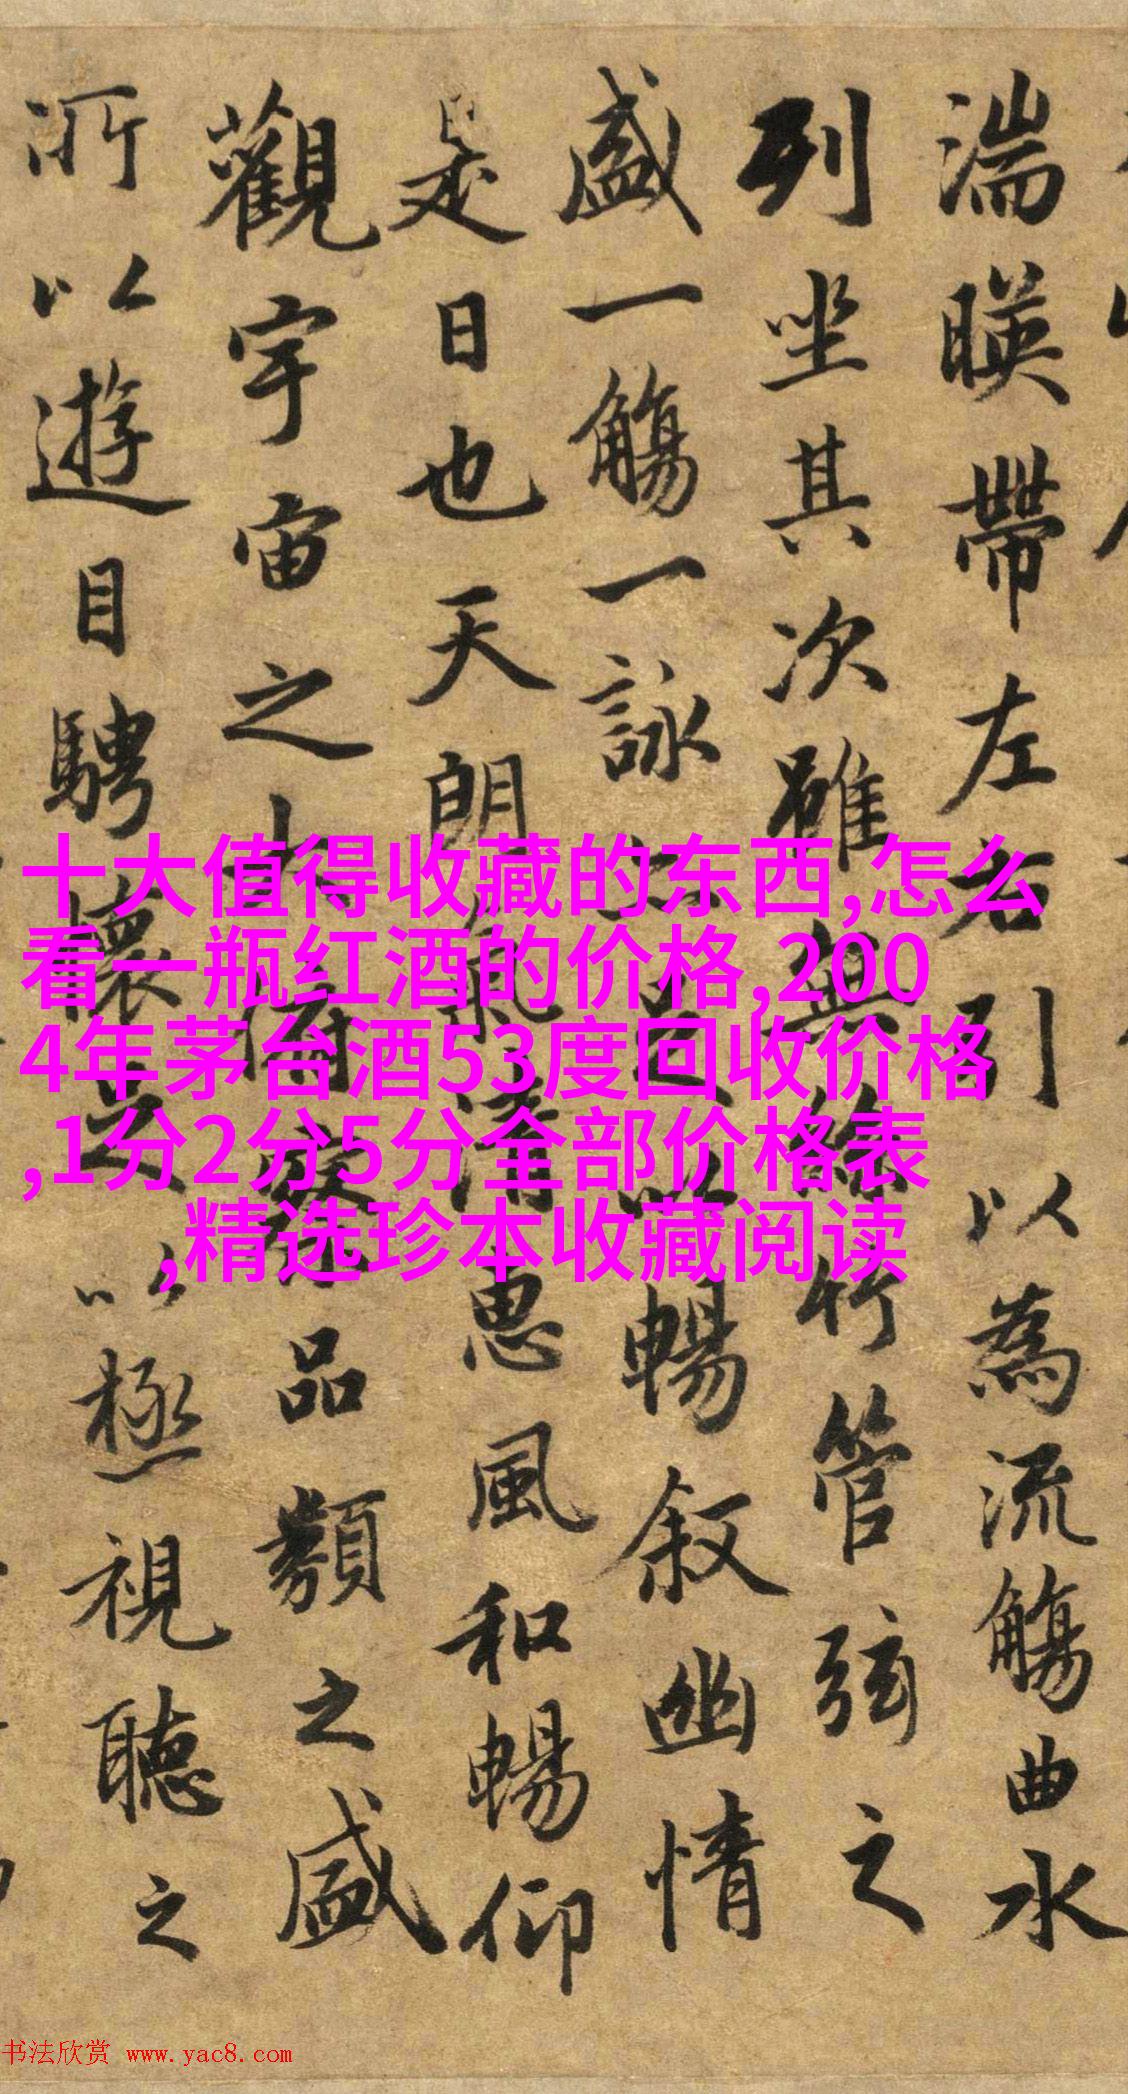 湍暎帶左右引以為流觴曲水
列坐其次雖無絲竹管弦之
盛一觴一詠亦足以暢叙幽情
是日也天朗氣清惠風和暢仰
觀宇宙之大俯察品類之盛
所以遊目騁懷足以極視聽之
十大值得收藏的东西,怎么
看一瓶红酒的价格,200
4年茅台酒53度回收价格
,1分2分5分全部价格表
,精选珍本收藏阅读
书法欣赏 www.yac8.com